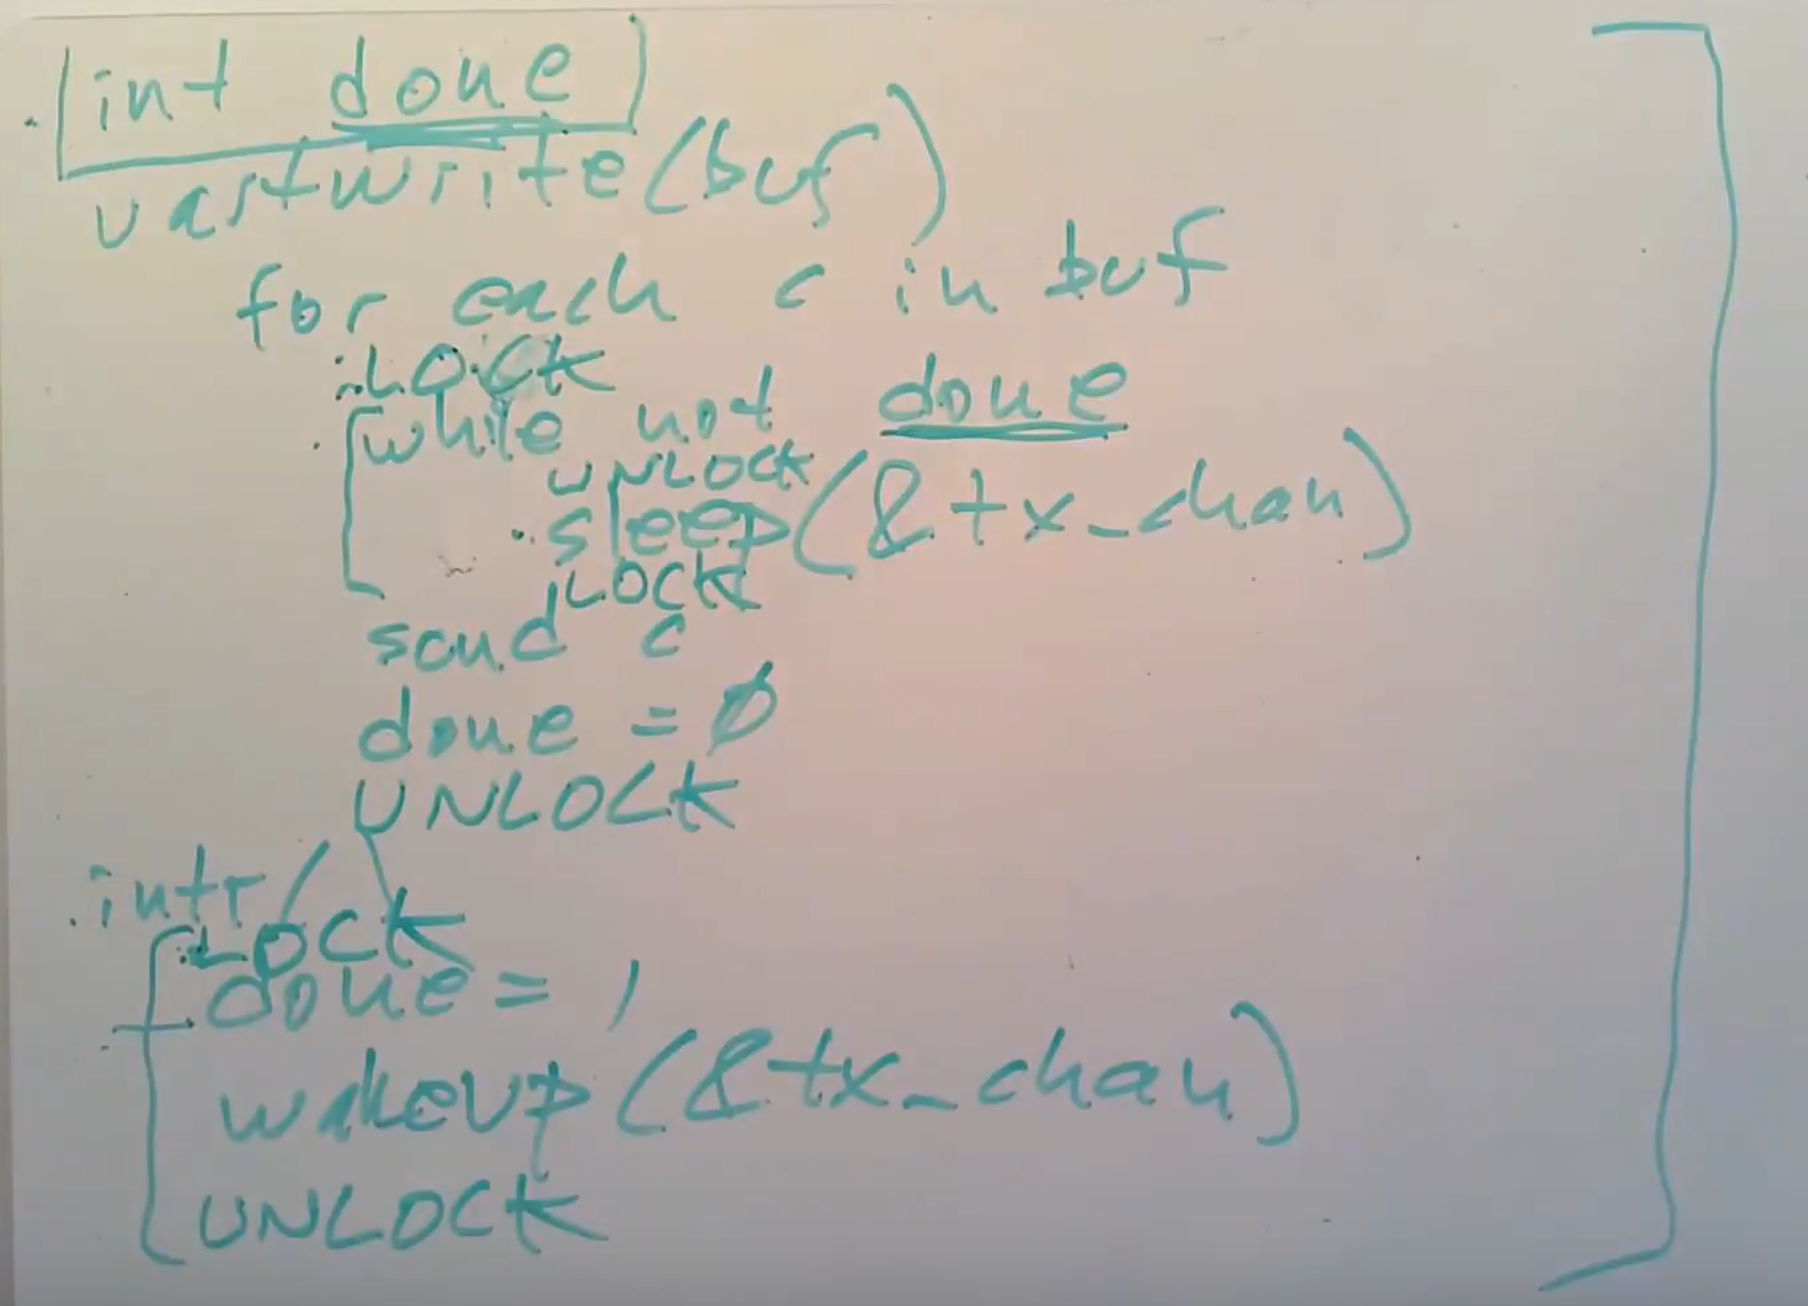 int done
uartwrite(buf)
for each c in buf
LOCK
while not done
UNLOCK
sleep(&tx_chan)
LOCK
send c
done = 0
UNLOCK
intr
LOCK
done = 1
wakeup(&tx_chan)
UNLOCK